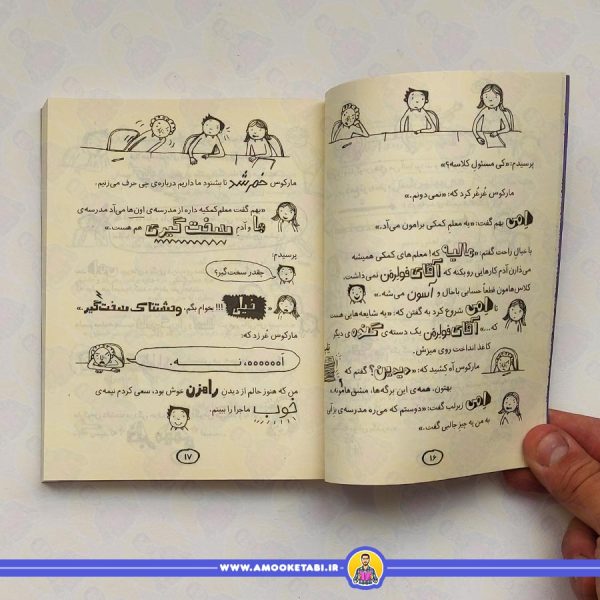 پرسیدم: «کی مسئول کلاسه؟»
مارکوس غُرغُر کرد که: «نمی‌دونم.»
اِمی بهم گفت: «یه معلم کمکی برامون می‌آد.»
با خیال راحت گفتم: «عالیه که! معلم‌های کمکی همیشه
می‌ذارن آدم کارهایی رو بکنه که آقای فولرمن نمی‌ذاشت.
کلاس‌هامون قطعاً حسابی باحال و آسون می‌شه.»
تا اِمی شروع کرد به گفتن که: «یه شایعه‌هایی هست
که...» آقای فولرمن یک دسته‌ی گنده‌ی دیگر
کاغذ انداخت روی میزش.
مارکوس آه کشید که: «دیدین؟ گفتم که
بهتون. همه‌ی این برگه‌ها، مشق‌ها
اِمی زیرلب گفت: «دوستم که می‌ره مدرسه‌ی
به من یه چیز جالبی گفت.»
۱۶
مارکوس خم شد تا بشنود ما داریم درباره‌ی چی حرف می‌زنیم.
«بهم گفت معلم کمکیه داره از مدرسه‌ی اون‌ها می‌آد مدرسه‌ی
ما و آدم سخت‌گیری هم هست.»
پرسیدم:
چقدر سخت‌گیر؟
«خیلی!!! بخوام بگم، وحشتناک سخت‌گیر.»
مارکوس غر زد که:
اَه‌ه‌ه‌ه‌ه، نـــــــه.
من که هنوز حالم از دیدن راه‌زن خوش بود، سعی کردم نیمه‌ی
خوب ماجرا را ببینم.
۱۷
WWW.AMOOKETABI.IR